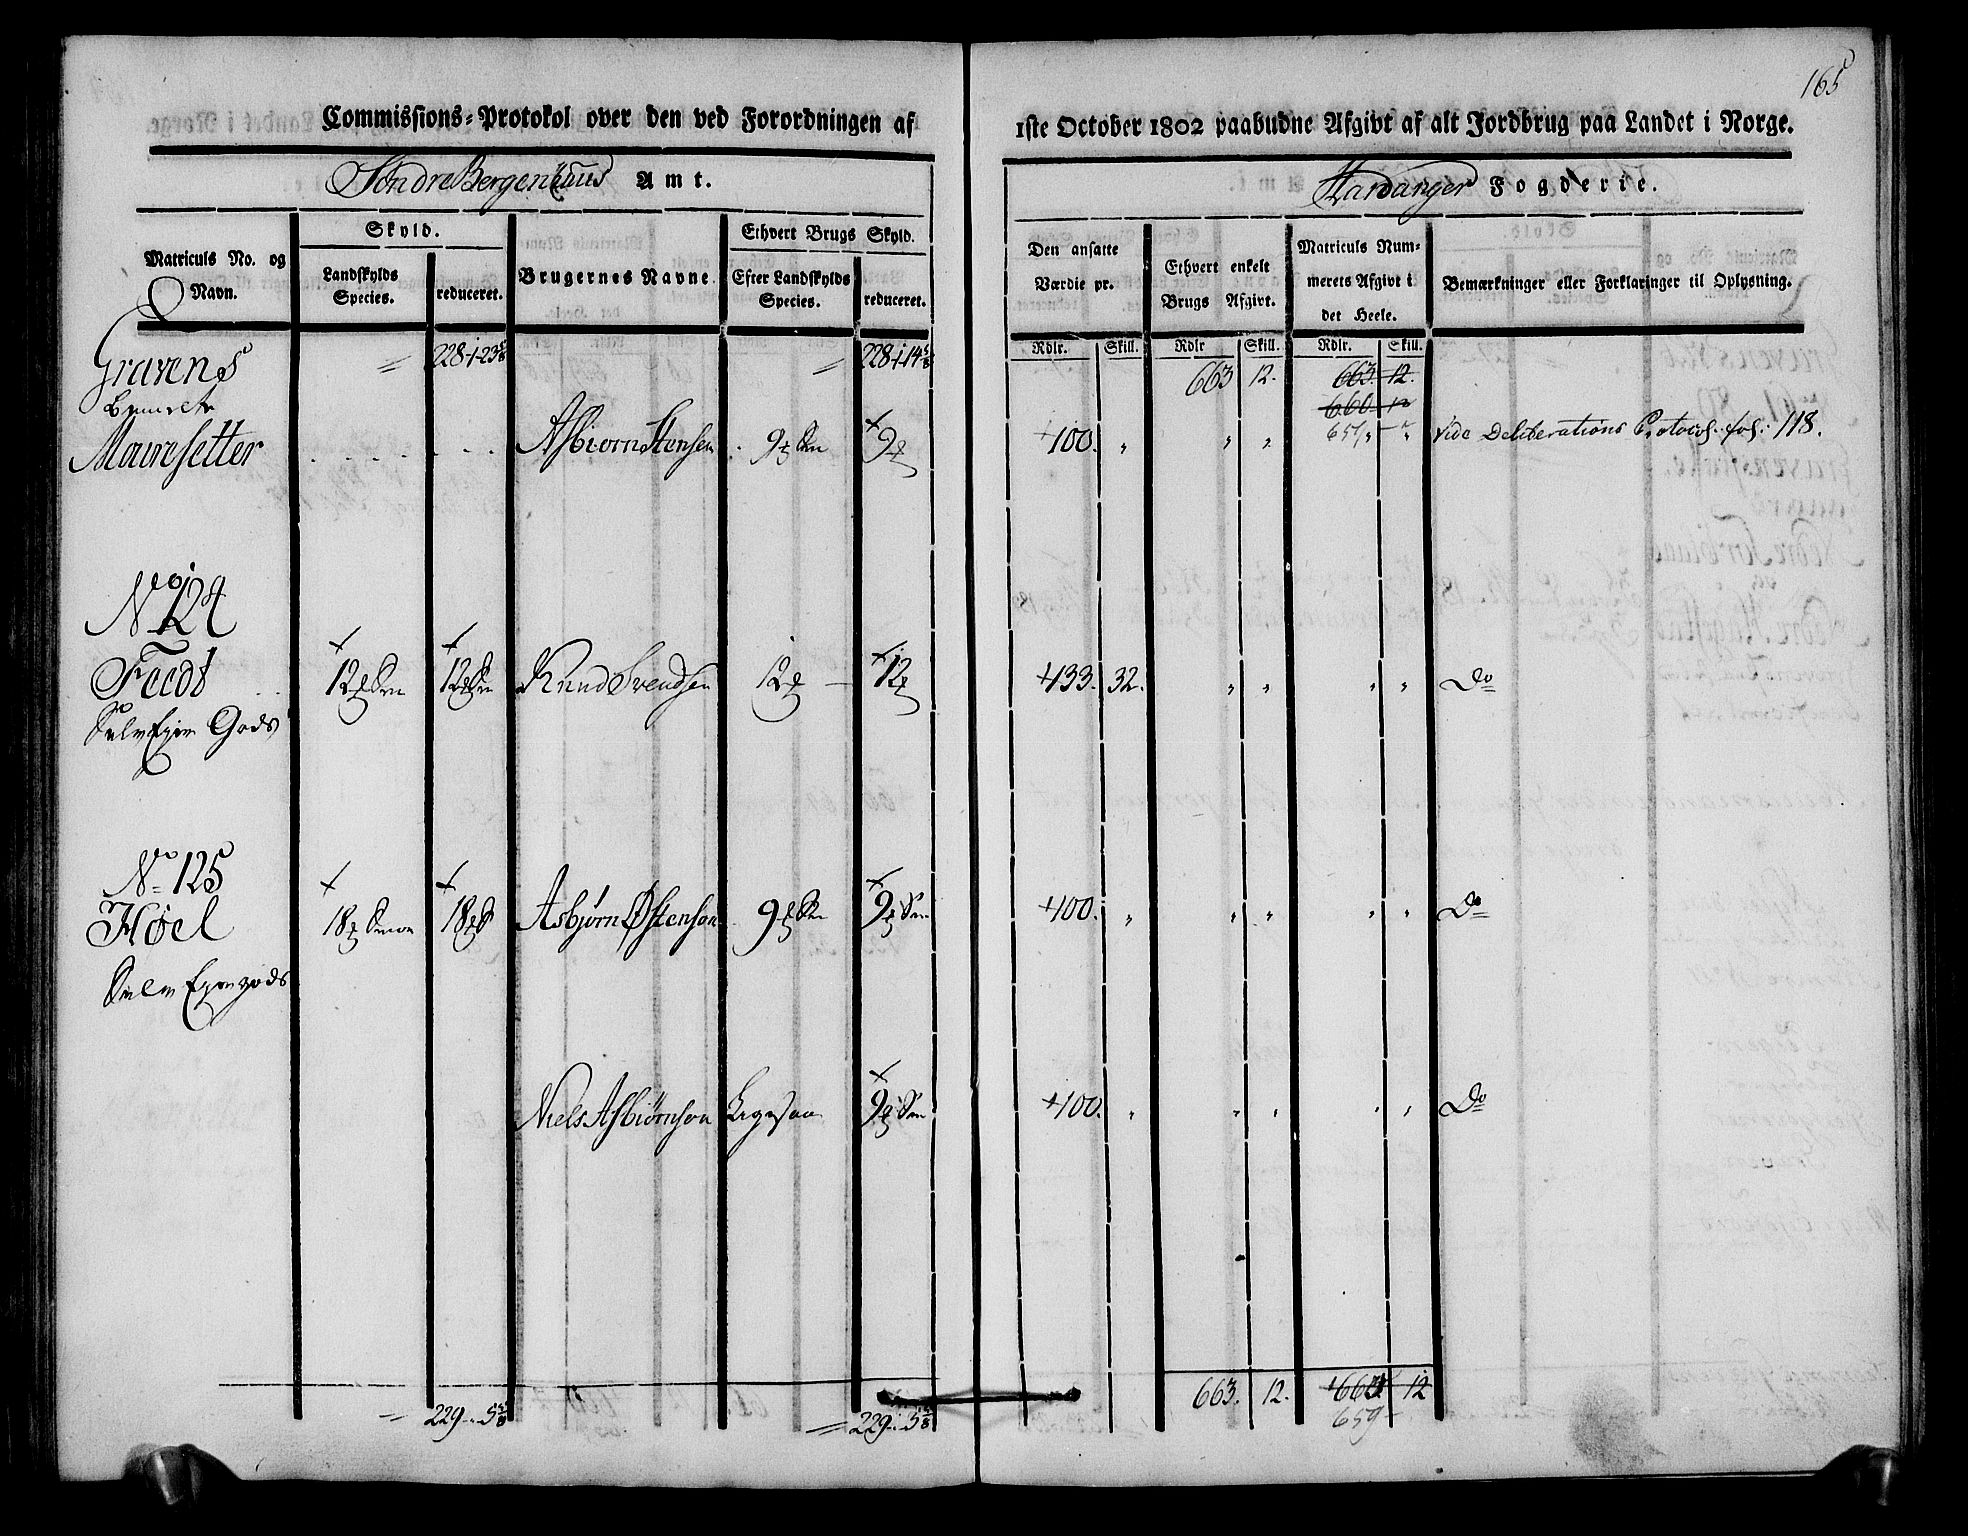 165
Commissions-Protokol over den ved Forordningen af 1ste October 1802 paabudne Afgivt af alt Jordbrug paa Landet i Norge.
SöndreBergenhuus Amt. Hardanger Fogderie.
Skyld. Ethvert Brugs Skyld.
Matriculs No. og Navn. Landskylds Species. reduceret. Brugernes Navne. Efter Landskylds Species. reduceret. Den ansatte Værdie pr. Ethvert enkelt Brugs Afgivt. Matriculs Nummerets Afgivt i det Heele. Bemærkninger eller Forklaringer til Oplysning.
Rdlr. Skill. Rdlr Skill. Rdlr. Skill.
Gravens 663 12. 663. 12.
660 12
657
Maursetter Asbiorn Stensen 9 9 100. " " " Vide Deliberations Protocol fol: 118.
No 124
Feedt 12 12 Knud Svendsen 12 12 433. 32. " " " " Do
Selv Eyer Gods
No 125
Høel 18 18 Asbjørn Østenson 9 9 400. " " " " " Do
Selv Eyergods
Niels Asbiørnson Ligesaa 9 400. " " " " " Do
663. 12. 663 12
229. 5 229. 5 659